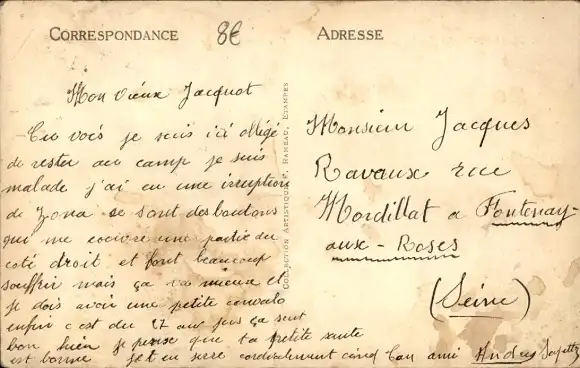 CORRESPONDANCE
8€
ADRESSE
Mon vieux Jacquot
Tu vois je suis ici obligé
de rester au camp je suis
malade j'ai eu une irreuption
de Zona se sont des boutons
qui me couvre une partie du
coté droit et font beaucoup
souffrir mais ça va mieux et
je dois avoir une petite convalo
enfin c'est du 27 au
bon bien je pense que ta petite santé
est bonne je t'en serre cordialement cinq Ton ami André
COLLECTION ARTISTIQUE P. RAMEAU, ETAMPES
Monsieur Jacques
Ravaux rue
Mordillat a Fontenay-
aux-Roses
(Seine)